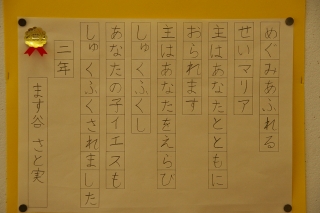 めぐみあふれる
せいマリア
主はあなたとともに
おられます
主はあなたをえらび
しゅくふくし
あなたの子イエスも
しゅくふくされました
二年
ます谷 さと実